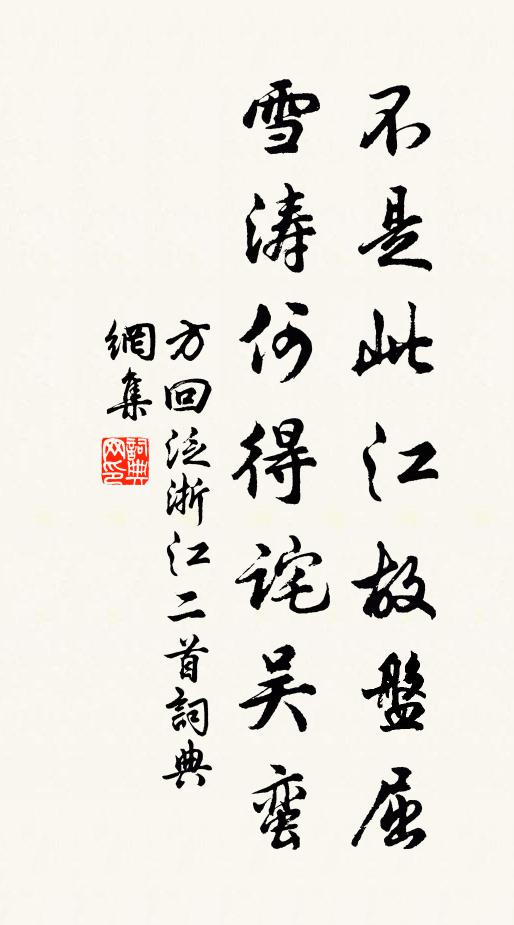 不是此江故盤屈
雪涛何得詫吴蛮
方回泛浙江二首詞典
網集
詞典網印